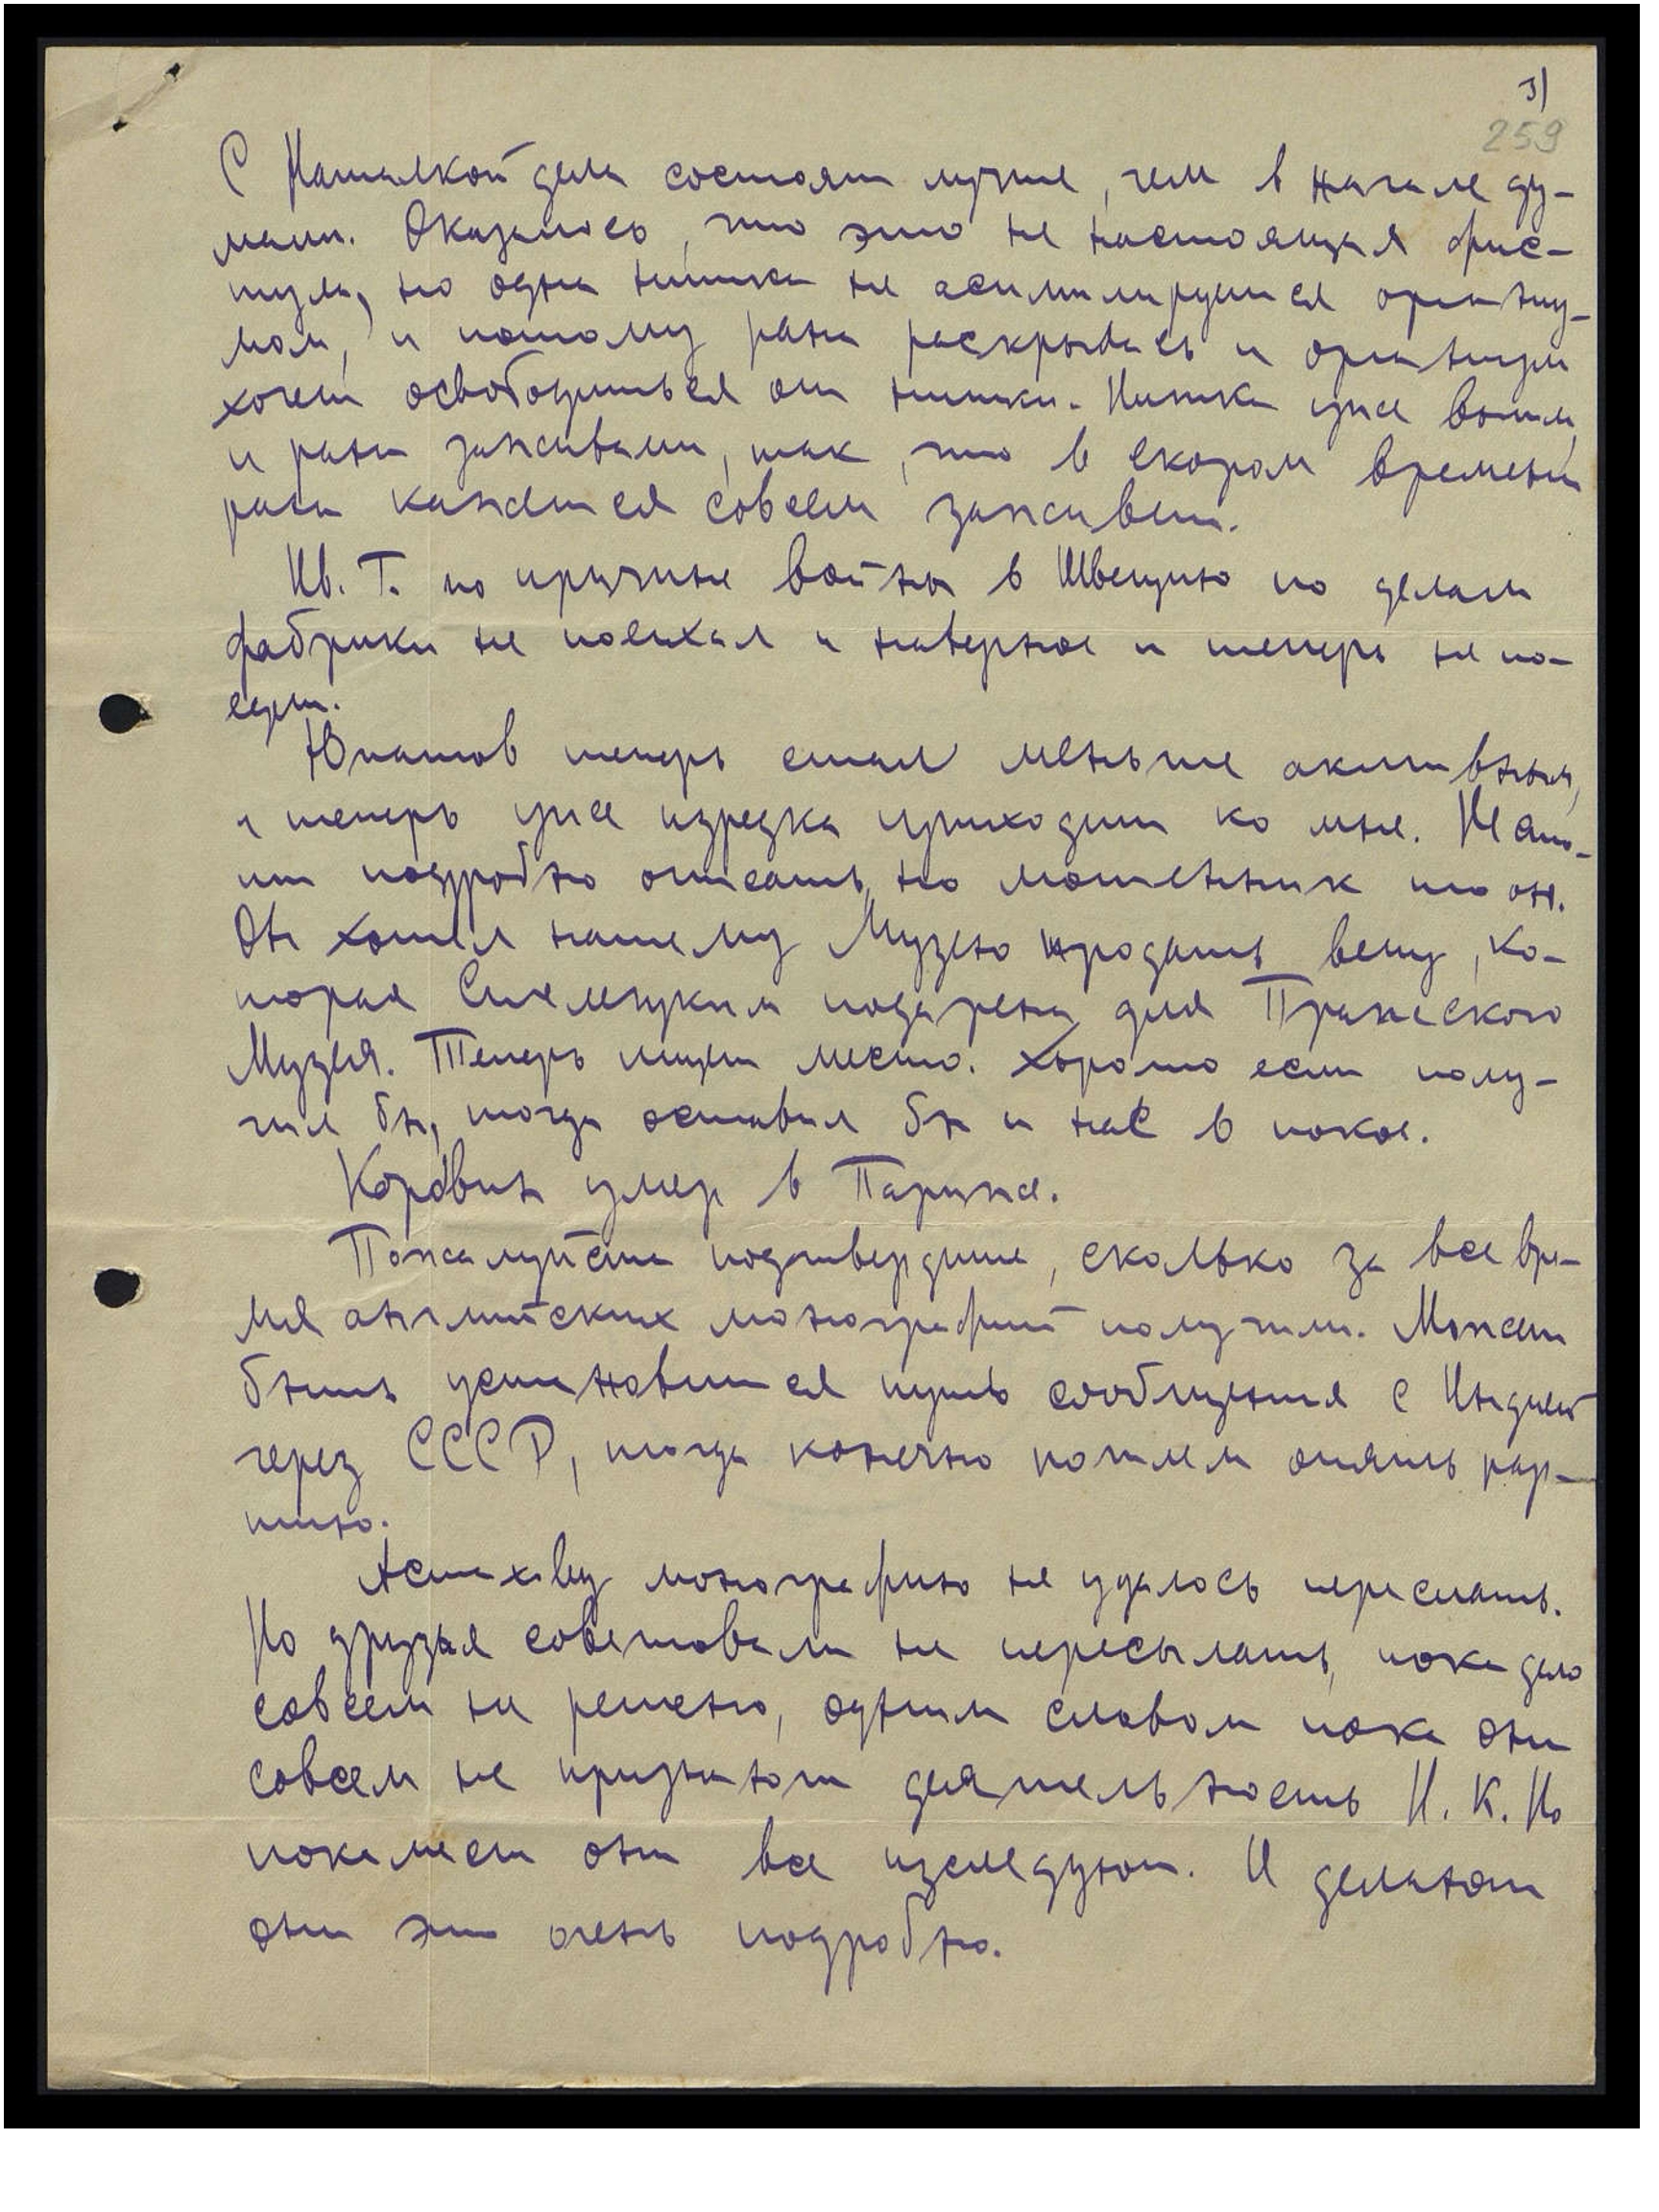 3)
259
С Наталкой дела состоят лучше, чем в начале ду-
мали. Оказалось, что это не настоящая фис-
тула, но одна нитка не асимилируется организ-
мом, и потому рана раскрывась и организм
хочет освободиться от нитки. Нитка уже вышла,
и рана заживает, так, что в скором времени
рана кажется совсем заживет.
Ив. Г. по причине войны в Швецию по делам
фабрики не поехал и наверное и теперь не по-
едет.
Юпатов теперь стал меньше активным,
и теперь уже изредка приходит ко мне. Не сто-
ит подробно описать, но мошенник это он.
Он хотел нашему Музею продать вещу, ко-
торая подарена для Пражского
Музея. Теперь ищет место. Хорошо если полу-
чил бы, тогда оставил бы и нас в покое.
Коровин умер в Париже.
Пожалуйста подтвердите, сколько за все вре-
мя английских монографий получили. Может
быть установится путь сообщения с Индией
через СССР, тогда конечно пошлем опять пар-
тию.
Астахову монографию не удалось переслать.
Но друзья советовали не пересылать, пока дело
совсем не решено, одним словом пока они
совсем не признают деятельность Н. К. Но
покамест они все изследуют. И делают
они это очень подробно.